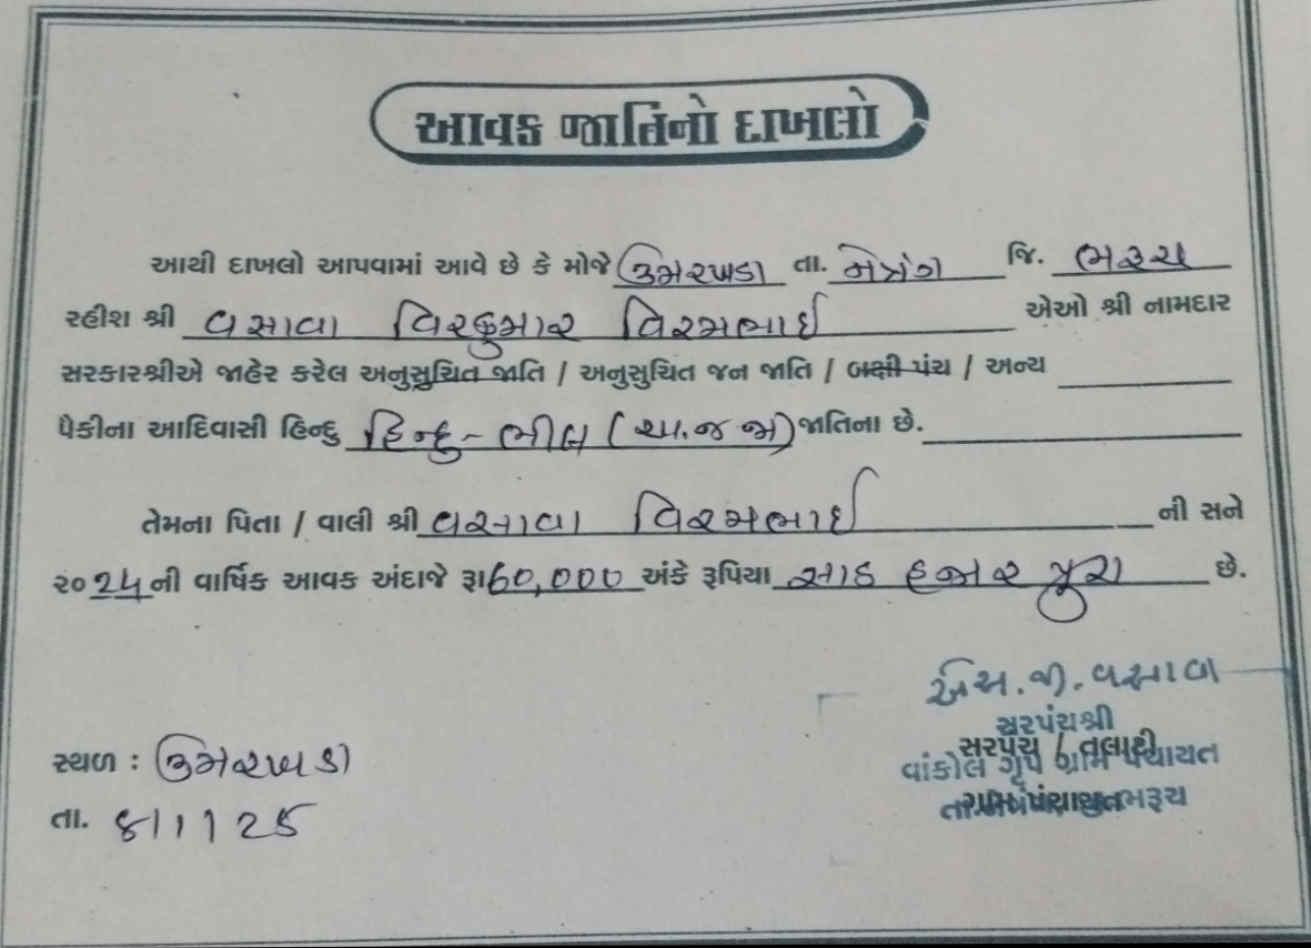 આવક જાતિનો દાખલો
આથી દાખલો આપવામાં આવે છે કે મોજે ઉમરખડા તા. નેત્રંગ જિ. ભરૂચ
રહીશ શ્રી વસાવા વિરકુમાર વિરમભાઈ એઓ શ્રી નામદાર
સરકારશ્રીએ જાહેર કરેલ અનુસુચિત જાતિ / અનુસુચિત જન જાતિ / બક્ષી પંચ / અન્ય
પૈકીના આદિવાસી હિન્દુ હિન્દુ - ભીલ (અ.જ જા) જાતિના છે.
તેમના પિતા / વાલી શ્રી વસાવા વિરમભાઈ ની સને
૨૦24 ની વાર્ષિક આવક અંદાજે રૂા 60,000 અંકે રૂપિયા સાઠ હજાર પુરા છે.
એસ.જી.વસાવા
સરપંચશ્રી
સરપંચ / તલાટી
વાંકોલ ગૃપ ગ્રામ પંચાયત
ગ્રામ પંચાયત
ભરૂચ
સ્થળ : ઉમરખડા
તા.